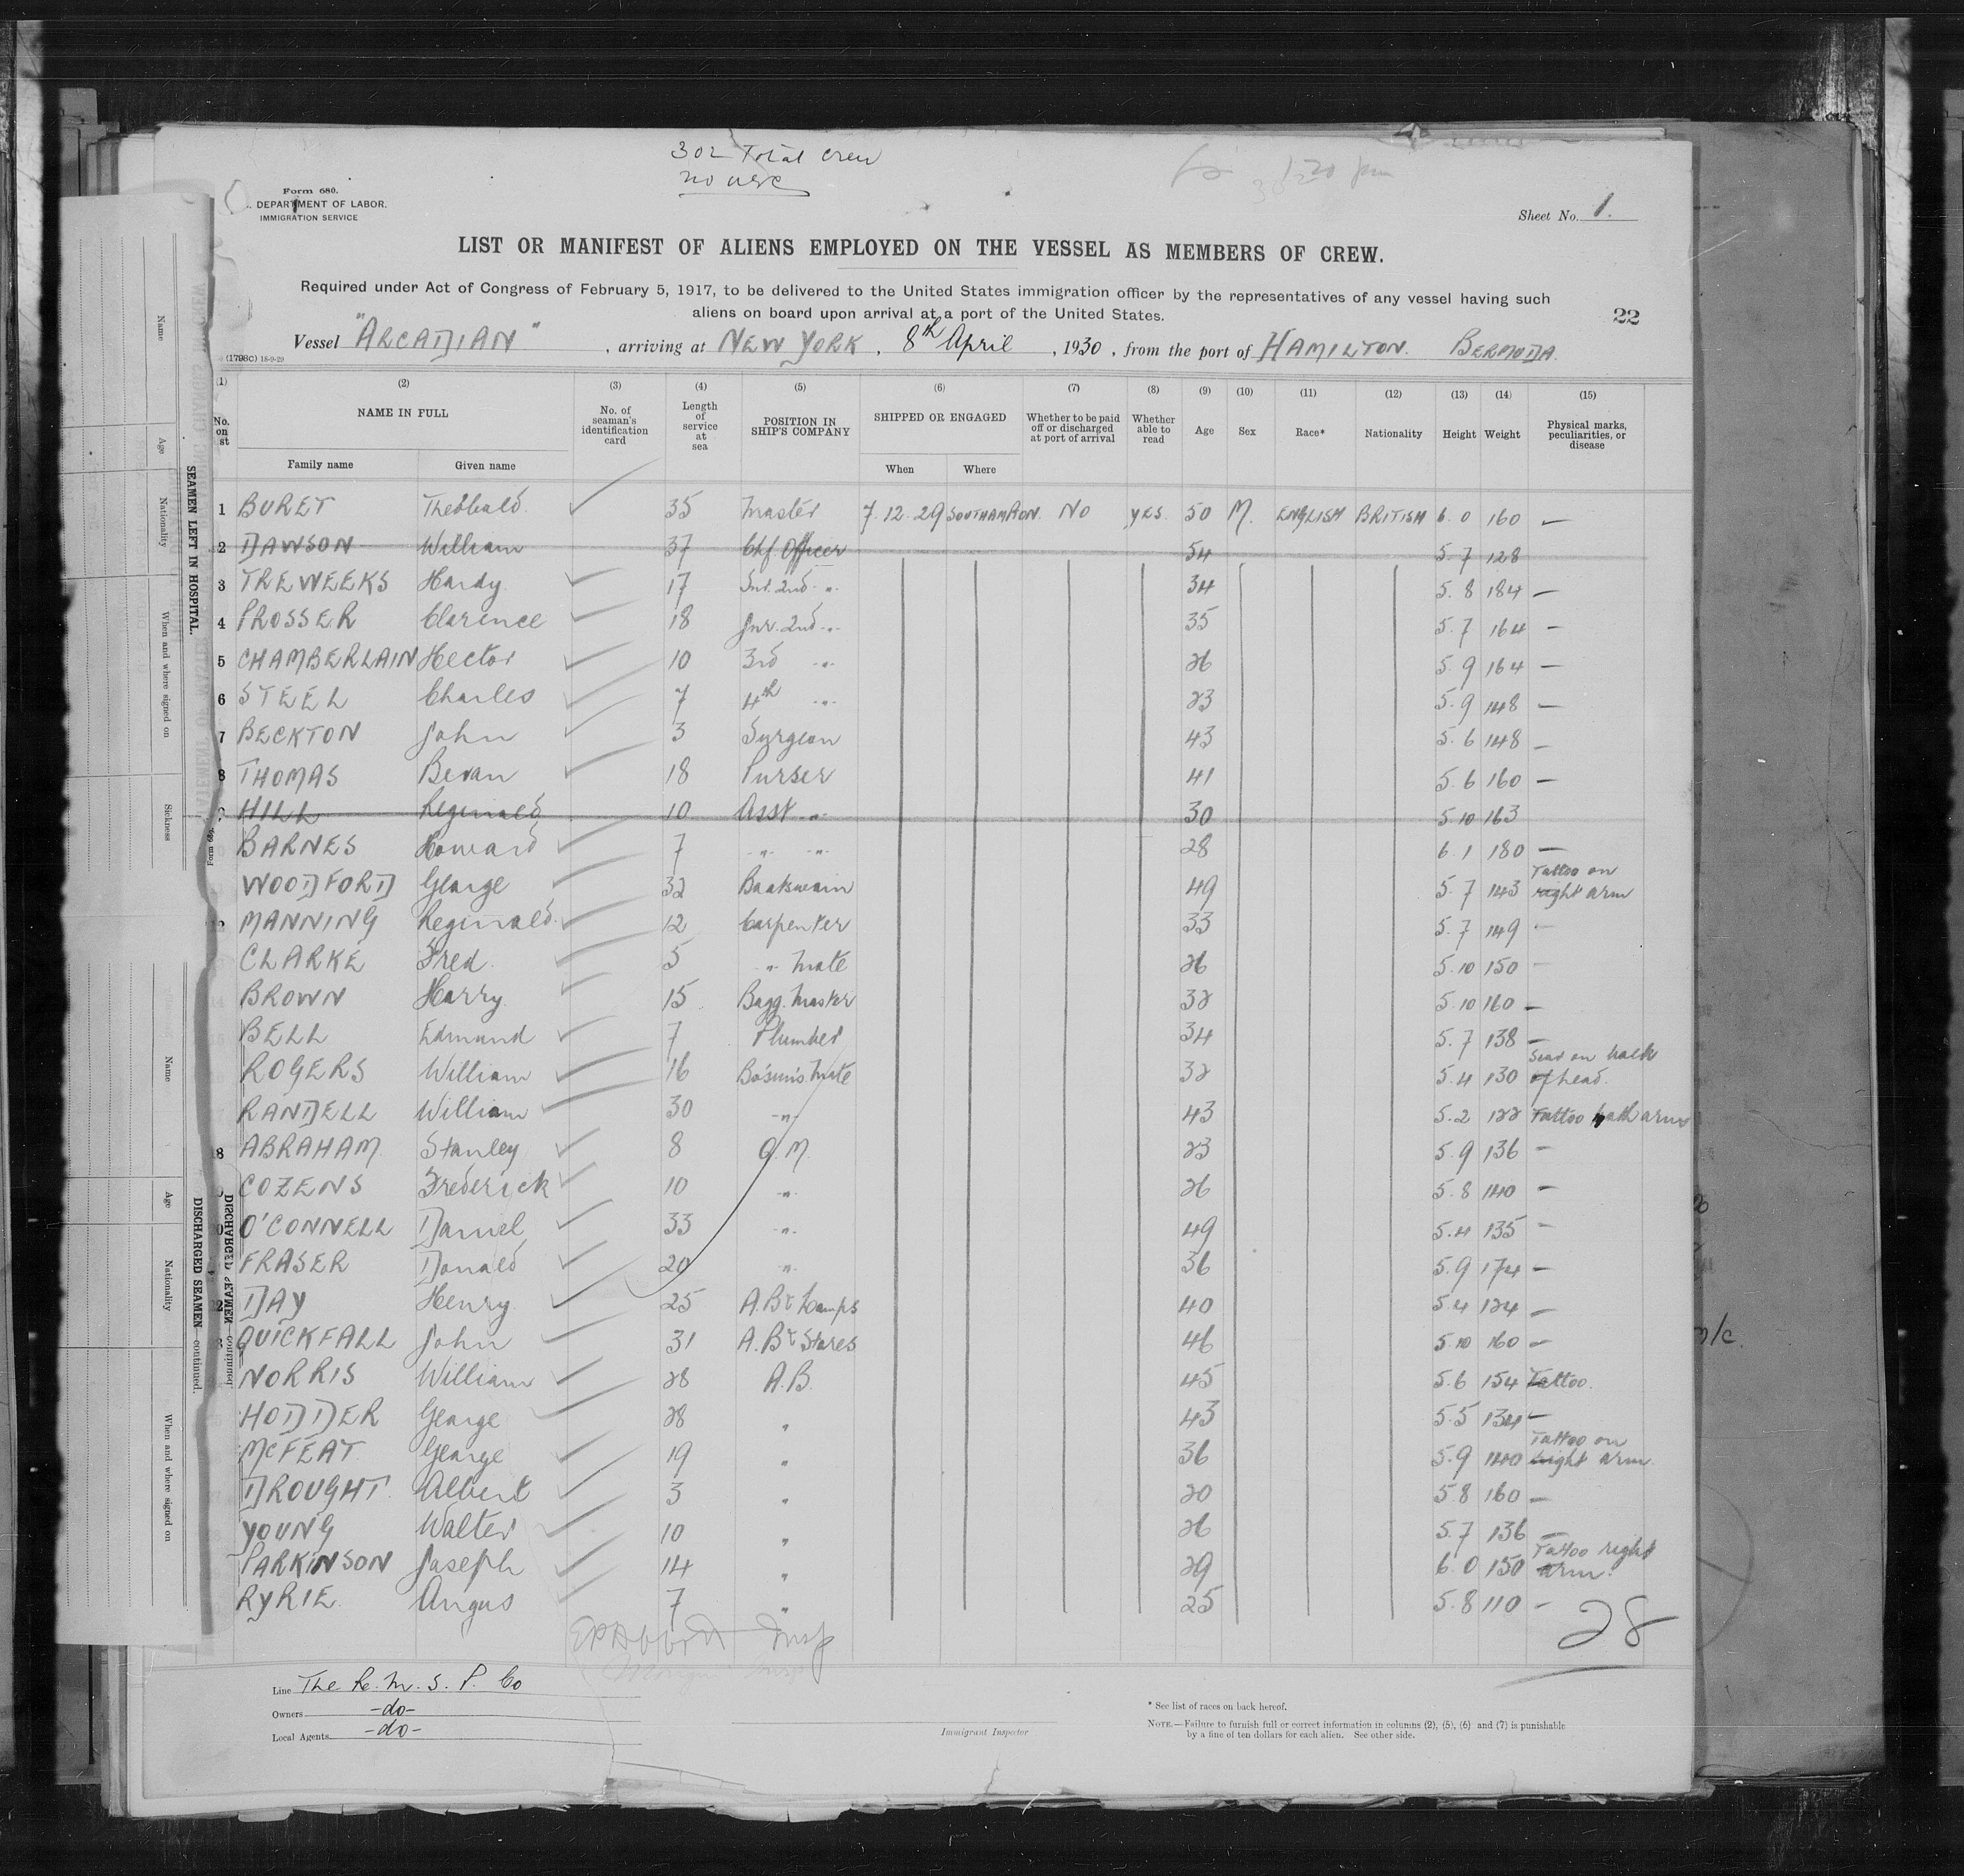 302 Total crew
no usc
1 20 pm
Form 680.
. DEPARTMENT OF LABOR.
IMMIGRATION SERVICE
Sheet No. 1.
LIST OR MANIFEST OF ALIENS EMPLOYED ON THE VESSEL AS MEMBERS OF CREW.
Required under Act of Congress of February 5, 1917, to be delivered to the United States immigration officer by the representatives of any vessel having such
aliens on board upon arrival at a port of the United States.
22
Vessel "ARCADIAN", arriving at NEW YORK, 8th April, 1930, from the port of HAMILTON. BERMUDA.
(1798C) 18-9-29
(1) (2) (3) (4) (5) (6) (7) (8) (9) (10) (11) (12) (13) (14) (15)
No. on st NAME IN FULL No. of seaman's identification card Length of service at sea POSITION IN SHIP'S COMPANY SHIPPED OR ENGAGED Whether to be paid off or discharged at port of arrival Whether able to read Age Sex Race* Nationality Height Weight Physical marks, peculiarities, or disease
Family name Given name When Where
1 BURET Theobald. 35 Master 7.12.29 SOUTHAMPTON. NO YES. 50 M. ENGLISH BRITISH 6.0 160 —
2 DAWSON William 37 Chf Officer 54 5.7 128
3 TREWEEKS Hardy. 17 Snr. 2nd " 34 5.8 184 —
4 PROSSER Clarence 18 Jnr. 2nd " 35 5.7 164 —
5 CHAMBERLAIN Hector 10 3rd " 26 5.9 164 —
6 STEEL Charles 7 4th " 23 5.9 148 —
7 BECKTON John 3 Surgeon 43 5.6 148 —
8 THOMAS Bevan 18 Purser 41 5.6 160 —
HILL Reginald 10 Asst " 30 5.10 163
BARNES Howard 7 " " 28 6.1 180 —
WOODFORD George 32 Boatswain 49 5.7 143 Tattoo on right arm
MANNING Reginald. 12 Carpenter 33 5.7 149 —
CLARKE Fred. 5 " Mate 26 5.10 150 —
BROWN Harry. 15 Bagg. Master 32 5.10 160 —
BELL Edmund 7 Plumber 34 5.7 138 —
ROGERS William 16 Bo'sun's Mate 32 5.4 130 Scar on back of head.
RANDELL William 30 " 43 5.2 122 Tattoo both arms
8 ABRAHAM Stanley 8 Q.M. 23 5.9 136 —
COZENS Frederick 10 " 26 5.8 140 —
0 O'CONNELL Daniel 33 " 49 5.4 135 —
FRASER Donald 20 " 36 5.9 174 —
2 DAY Henry 25 A.B & Lamps 40 5.4 124 —
QUICKFALL John 31 A.B & Stores 46 5.10 160 —
NORRIS William 28 A.B. 45 5.6 154 Tattoo.
HODDER George 28 " 43 5.5 134 —
McFEAT George 19 " 36 5.9 140 Tattoo on right arm.
DROUGHT Albert 3 " 20 5.8 160 —
YOUNG Walter 10 " 26 5.7 136 —
PARKINSON Joseph 14 " 29 6.0 150 Tattoo right arm.
RYRIE. Angus 7 " 25 5.8 110 —
28
EP Abbott Insp
Line The R. M. S. P. Co
Owners -do-
Local Agents -do-
Immigrant Inspector
* See list of races on back hereof.
NOTE.—Failure to furnish full or correct information in columns (2), (5), (6) and (7) is punishable
by a fine of ten dollars for each alien. See other side.
SEAMEN LEFT IN HOSPITAL.
Name
Age
Nationality
When and where signed on
Sickness
DISCHARGED SEAMEN—continued.
DISCHARGED SEAMEN—continued
Name
Age
Nationality
When and where signed on